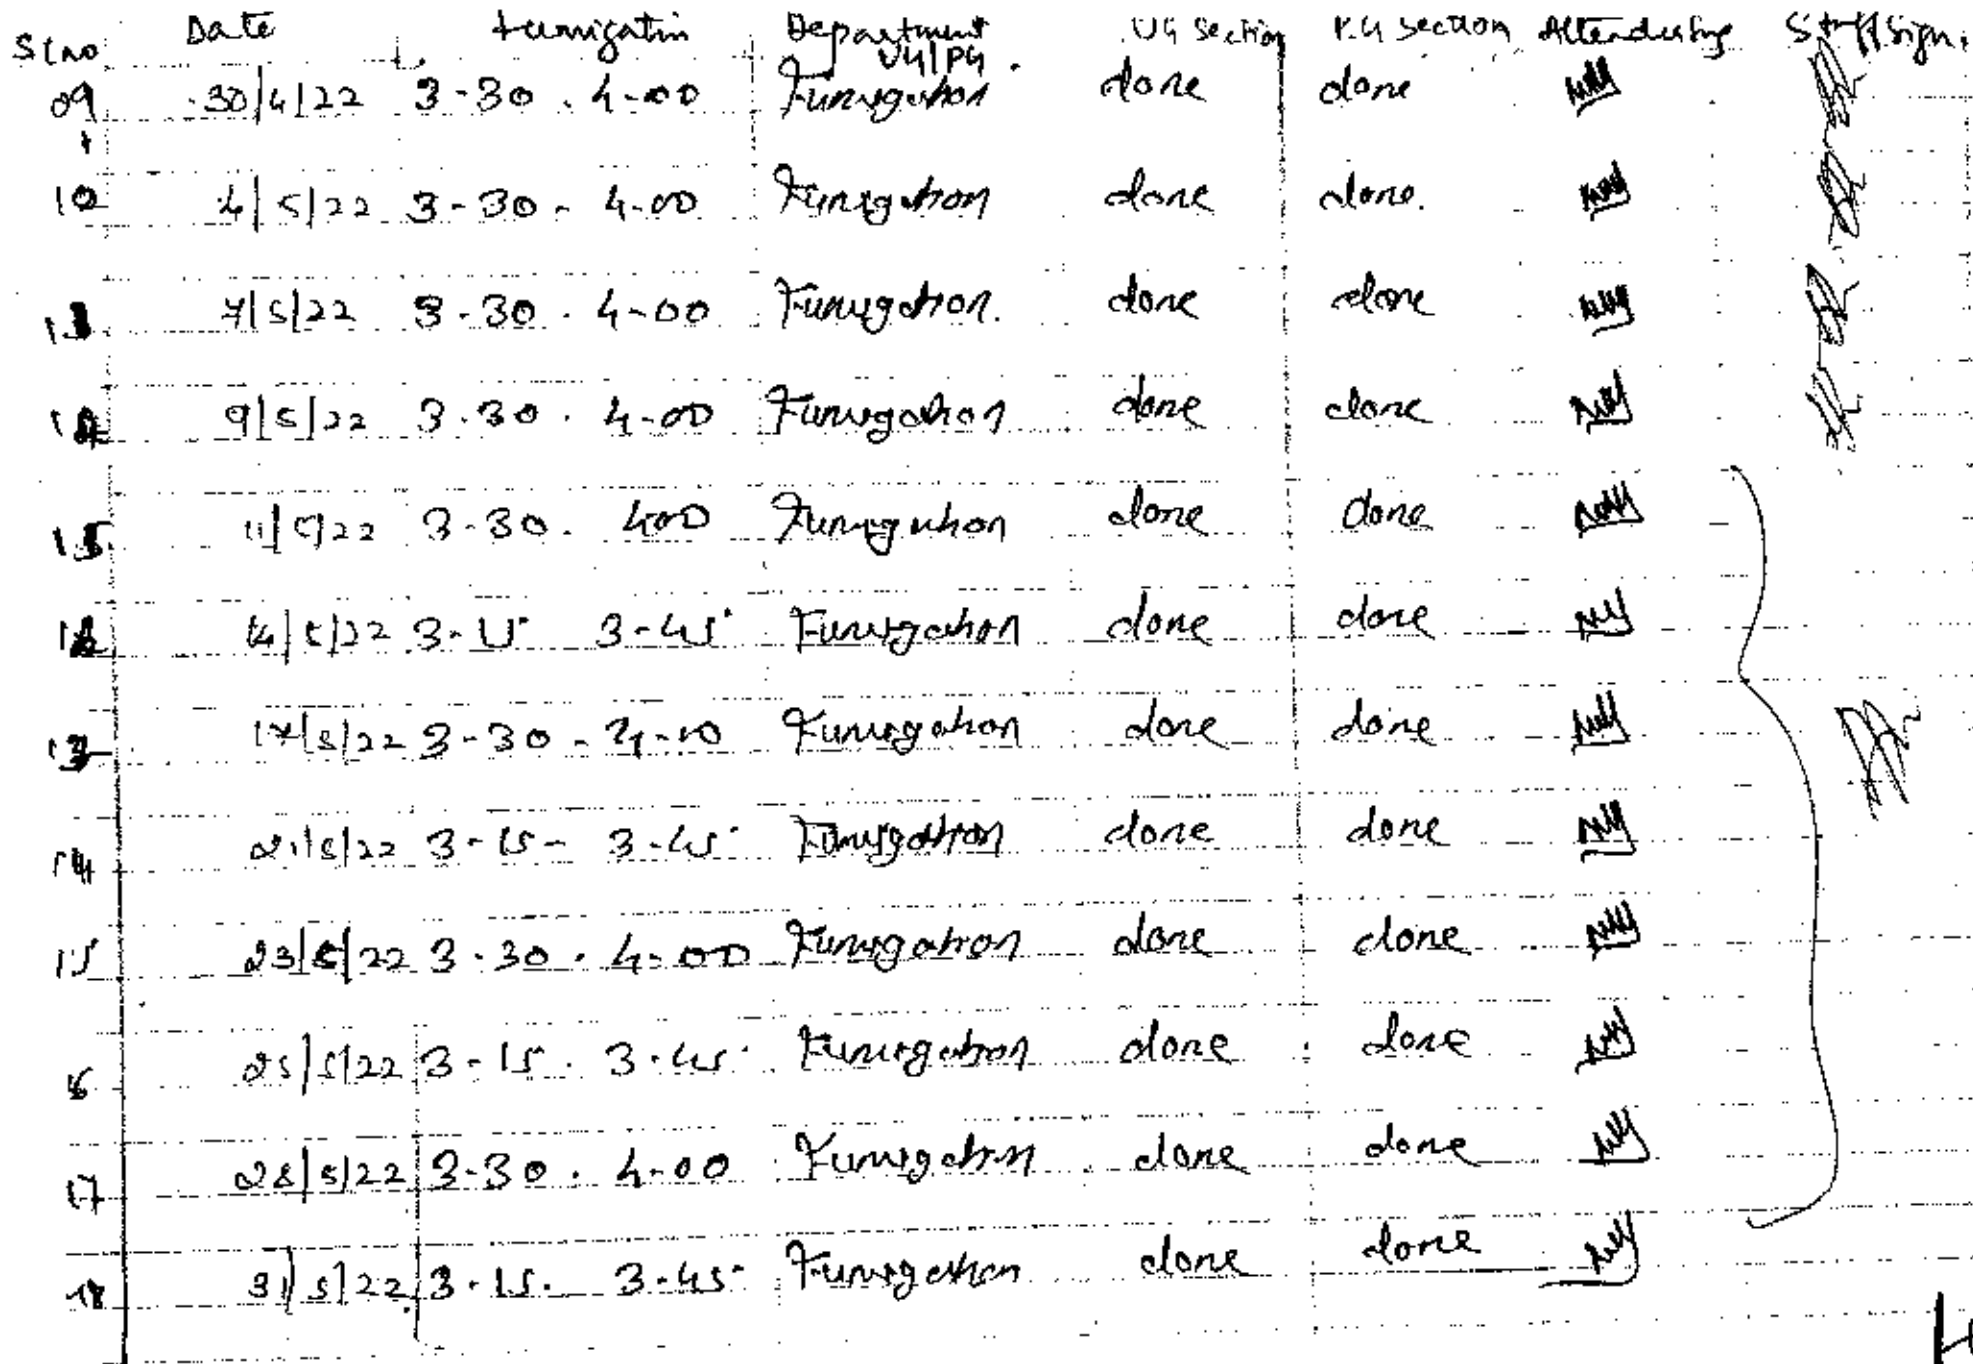 Sl no Date Fumigatin Department UG/PG. UG Section P.G Section Attendusing Staff Sign.
09 30/4/22 3-30 . 4-00 Fumigation done done
10 4/5/22 3-30 - 4-00 Fumigation done done.
11 7/5/22 3-30 . 4-00 Fumigation. done done
9/5/22 3-30 . 4-00 Fumigation done done
11/5/22 3-30 . 400 Fumigation done done
14/5/22 3-15 3-45 Fumigation done done
13 17/5/22 3-30 - 4-00 Fumigation done done
14 21/5/22 3-15 - 3-45 Fumigation done done
15 23/5/22 3-30 . 4-00 Fumigation done done
16 25/5/22 3-15 . 3-45 Fumigation done done
17 28/5/22 3-30 . 4-00 Fumigation done done
18 31/5/22 3-15 . 3-45 Fumigation done done